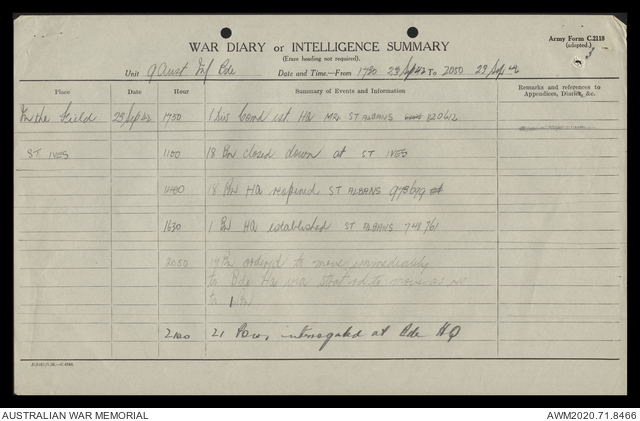 WAR DIARY or INTELLIGENCE SUMMARY
(Erase heading not required).
Army Form C.2118
(adapted.)
Unit 9 Aust Inf Bde Date and Time.—From 1730 23/Sep/42 To 2050 23/Sep/42
Place Date Hour Summary of Events and Information Remarks and references to Appendices, Diaries, &c.
In the Field 23 Sep 42 1750 1 Div Comd est HQ ST ALBANS 820612
ST IVES 1100 18 Bn closed down at ST IVES
1400 18 Bn HQ reopened ST ALBANS 978699
1630 1 Bn HQ established ST ALBANS 748761
2050 ordered to move immediately
to Bde HQ to move as
to 1 Bn
2100 21 interrogated at Bde HQ
AUSTRALIAN WAR MEMORIAL
AWM2020.71.8466